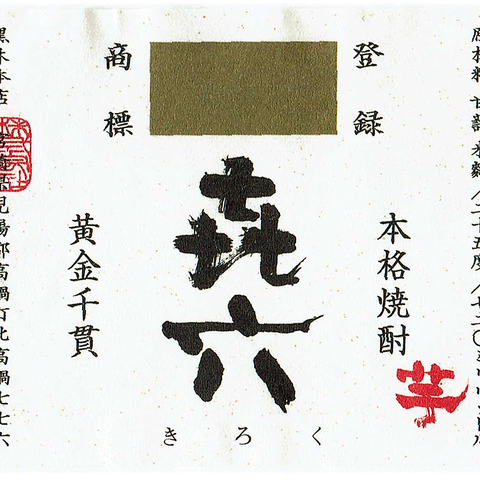 原材料 甘藷 米麹/二十五度/七二〇ミリリットル
登録
商標
本格焼酎
芋
㐂六
きろく
黄金千貫
黒木本店 宮崎県児湯郡高鍋町北高鍋七七六